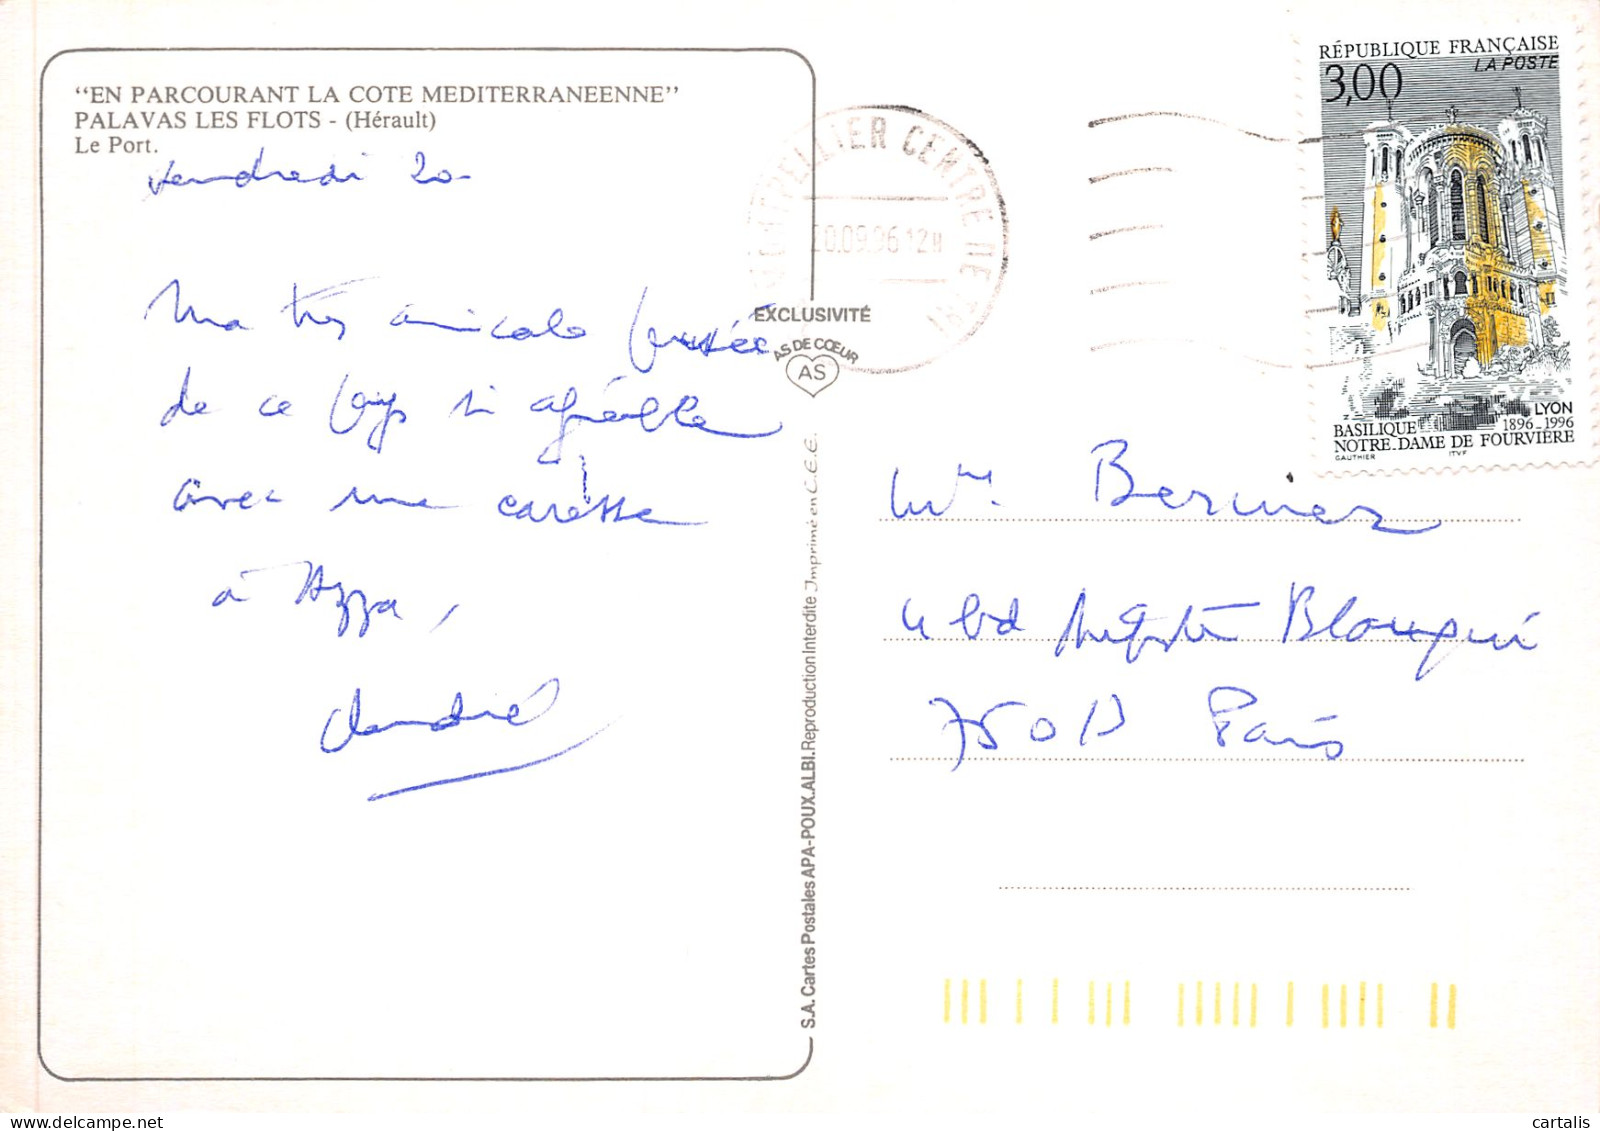 "EN PARCOURANT LA COTE MEDITERRANEENNE"
PALAVAS LES FLOTS - (Hérault)
Le Port.
Vendredi 20
Ma très amicale pensée
de ce pays si agréable
avec une caresse
à Azza,
MONTPELLIER CENTRE DE TRI
20.09.96 12H
EXCLUSIVITÉ
AS DE CŒUR
AS
S.A. Cartes Postales APA-POUX.ALBI. Reproduction Interdite Imprimé en C.E.E.
RÉPUBLIQUE FRANÇAISE
LA POSTE
3,00
LYON
BASILIQUE 1896-1996
NOTRE-DAME DE FOURVIÈRE
GAUTHIER ITVF
Bernier
4 bd Auguste Blanqui
75013 Paris
cartalis